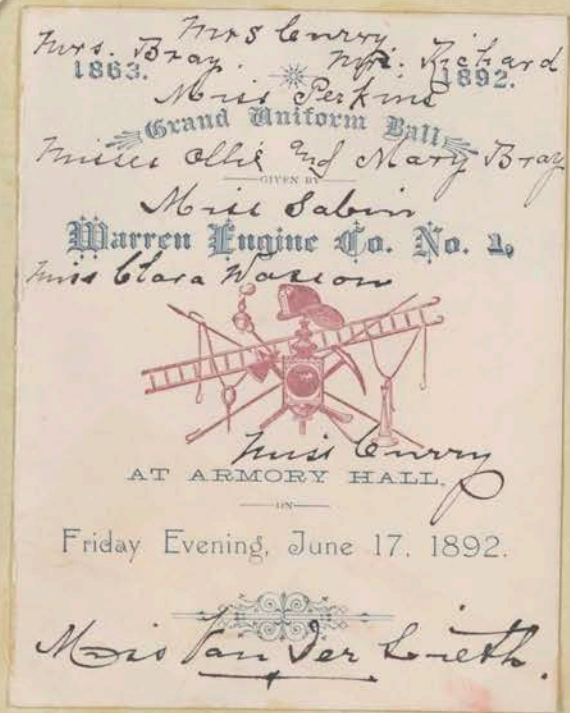 Mrs Curry
Mrs. Bray. Mrs. Richard
1863. 1892.
Miss Perkins
Grand Uniform Ball
Misses Ollie and Mary Bray
GIVEN BY
Miss Sabin
Warren Engine Co. No. 1,
Miss Clara Wasson
Miss Curry
AT ARMORY HALL,
ON
Friday Evening, June 17, 1892.
Miss Van Der Lieth.